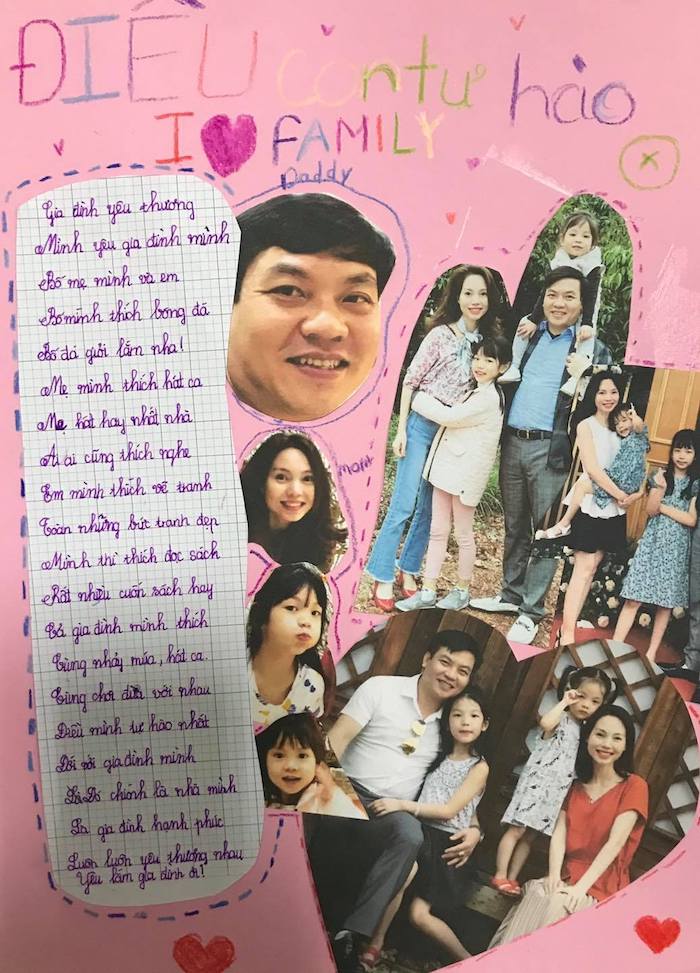 ĐIỀU con tự hào
I FAMILY
Daddy
Gia đình yêu thương
Mình yêu gia đình mình
Bố mẹ mình và em
Bố mình thích bóng đá
Bố đá giỏi lắm nha!
Mẹ mình thích hát ca
Mẹ hát hay nhất nhà
Ai ai cũng thích nghe
Em mình thích vẽ tranh
Toàn những bức tranh đẹp
Mình thì thích đọc sách
Rất nhiều cuốn sách hay
Cả gia đình mình thích
Cùng nhảy múa, hát ca.
Cùng chơi đùa với nhau
Điều mình tự hào nhất
Đối với gia đình mình
Là Đó chính là nhà mình
Là gia đình hạnh phúc
Luôn luôn yêu thương nhau
Yêu lắm gia đình ơi!